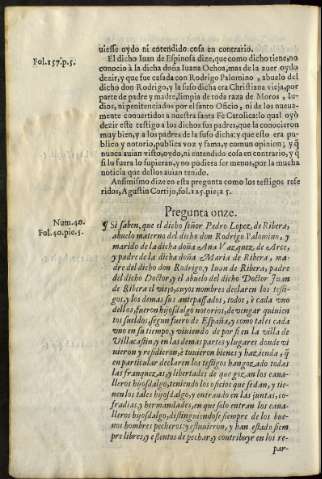 uiesse oydo ni entendido cosa en contrario.
Fol.157.p.5.
El dicho Iuan de Espinosa dize, que como dicho tiene, no
conocio à la dicha doña Iuana Ochoa, mas de la auer oydo
dezir, y que fue casada con Rodrigo Palomino, abuelo del
dicho don Rodrigo, y la susodicha era Christiana vieja, por
parte de padre y madre, limpia de toda raza de Moros, Iu-
dios, ni penitenciados por el santo Oficio, ni de los nueua-
mente conuertidos a nuestra santa Fè Catolica: lo qual oyò
dezir este testigo a los dichos sus padres, que la conocieron
muy bien, y a los padres de la susodicha: y que esto era pu-
blico y notorio, publica voz y fama, y comun opinion; y q̃
nunca auian visto, oydo, ni entendido cosa en contrario, y q̃
si lo fuera lo supieran, y no pudiera ser menos, por la mucha
noticia que dellos auian tenido.
Assimismo dize en esta pregunta como los testigos refe
ridos, Agustin Cortijo, fol. 125. pie, 25.
Pregunta onze.
Num.40.
Fol.40.pie.5.
¶ Si saben, que el dicho señor Pedro Lopez, de Ribera,
abuelo materno del dicho don Rodrigo Palomino, y
marido de la dicha doña Ana Vazquez, de Arce,
y padre de la dicha doña Maria de Ribera, ma-
dre del dicho don Rodrigo, y Iuan de Ribera, padre
del dicho Doctor, y el abuelo del dicho Doctor Iuan
de Ribera el viejo, cuyos nombres declaren los testi-
gos, y los demas sus antepassados, todos, è cada vno
dellos, fueron hijosdalgo notorios, de vengar quinien
tos sueldos, segun fuero de España, y como tales cada
vno en su tiempo, y viuiendo de por si en la villa de
Villacastin, y en las demas partes y lugares donde vi
uieron y residieron, è tuuieron bienes y hazienda, q̃
en particular declaren los testigos han gozado todas
las franquezas, y libertades de que gozan los caua-
lleros hijosdalgo, teniendo los oficios que se dan, y tie-
nen los tales hijosdalgo, y entrando en las juntas, co-
fradias, y hermandades, en que solo entran los caua-
lleros hijosdalgo, distinguiendose siempre de los bue-
nos hombres pecheros, y estuuieron, y han estado siem
pre libres, y essentos de pechar, y contribuyr en los re-
par-